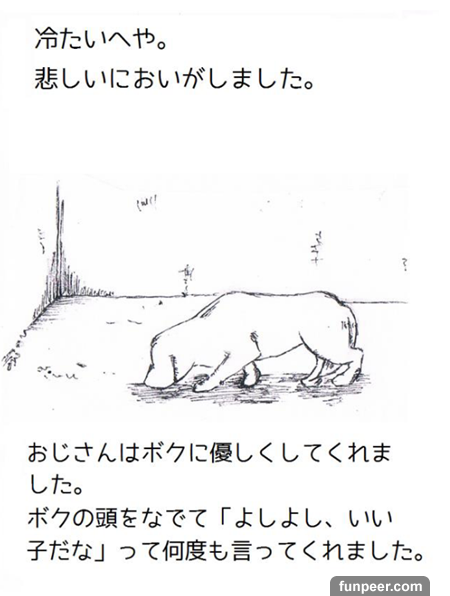 冷たいへや。
悲しいにおいがしました。
おじさんはボクに優しくしてくれま
した。
ボクの頭をなでて「よしよし、いい
子だな」って何度も言ってくれました。
funpeer.com